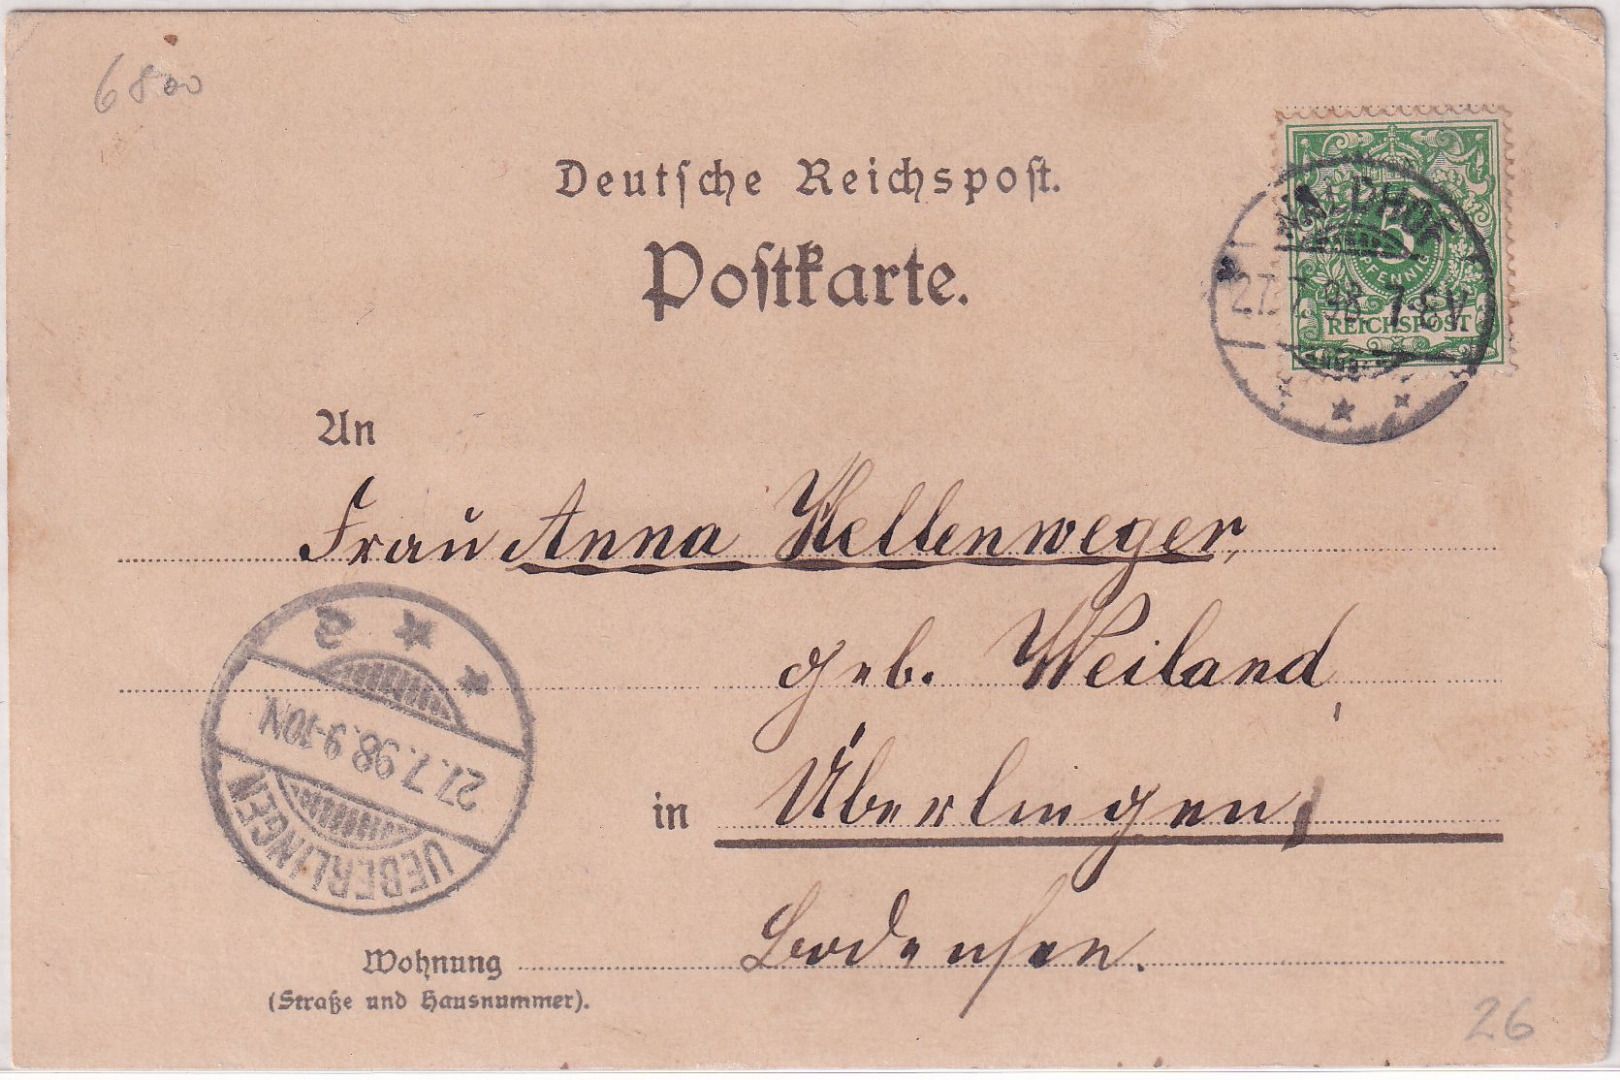 6800
Deutsche Reichspost.
Postkarte.
WALDHOF
27.7.98. 7-8V
5
PFENNIG
REICHSPOST
An
Frau Anna Kellenweger,
geb. Weiland,
in Überlingen,
Bodensee.
2
27.7.98.9-10N
UEBERLINGEN
Wohnung
(Straße und Hausnummer).
26